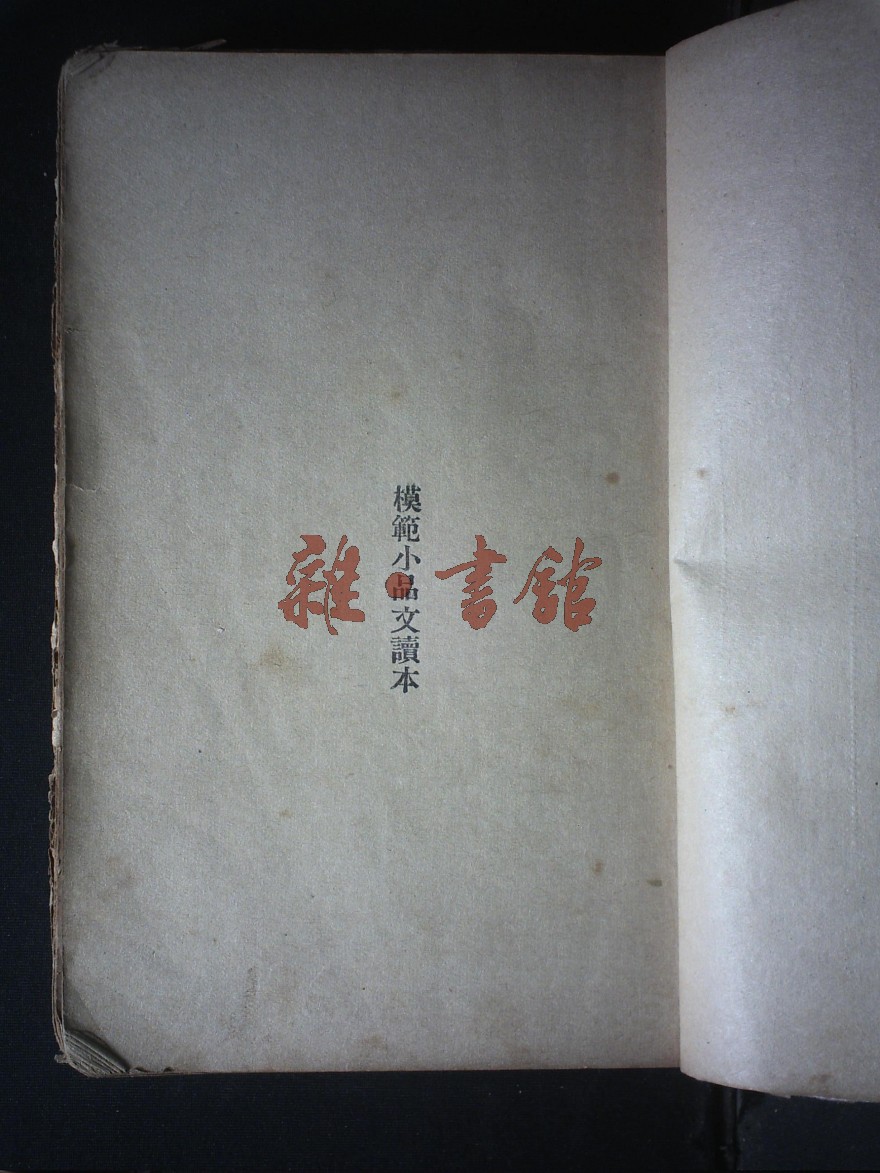 模範小品文讀本
雜·書館